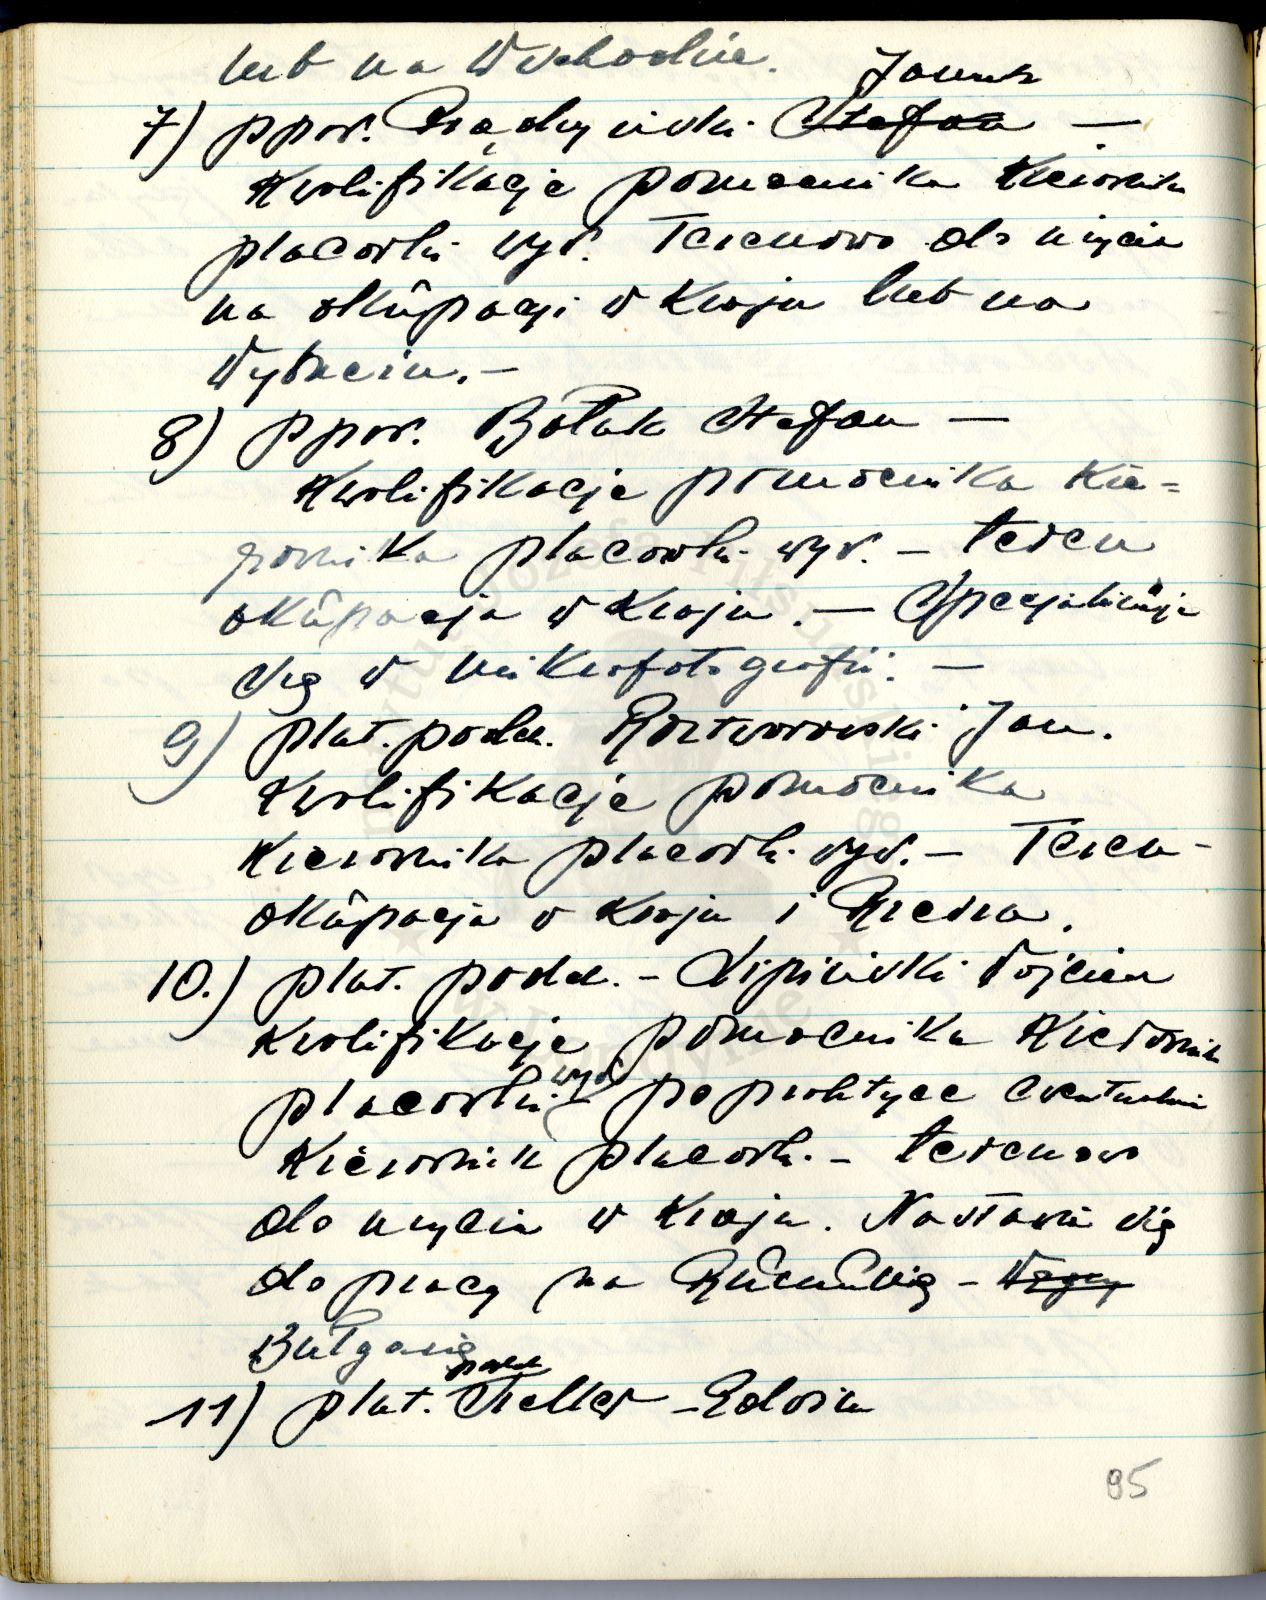 lub na Wschodzie.
Janusz
7) ppor. Prądzyński Stefan —
Kwalifikacje pomocnika Kierownika
placówki wyw. Terenowo do użycia
na okupacji w Kraju lub na
8) ppor. Bałuk Stefan —
Kwalifikacje pomocnika Kie=
rownika placówki wyw. — teren
okupacja w Kraju. — Specjalizuje
się w mikrofotografii. —
9) plut. podch. Roztworowski Jan.
Kwalifikacje pomocnika
Kierownika placówki wyw. — Teren —
okupacja w Kraju i
10.) plut. podch. — Lipiński Wojciech
Kwalifikacje pomocnika Kierownika
wyw.
placówki — po praktyce ewentualnie
Kierownik placówki. — terenowo
do użycia w Kraju. Nastawia się
do pracy na Rumunię — Węgry
Bułgarię
podch.
11) plut. Scheller Edwin
95
Instytut Józefa Piłsudskiego
w Londynie